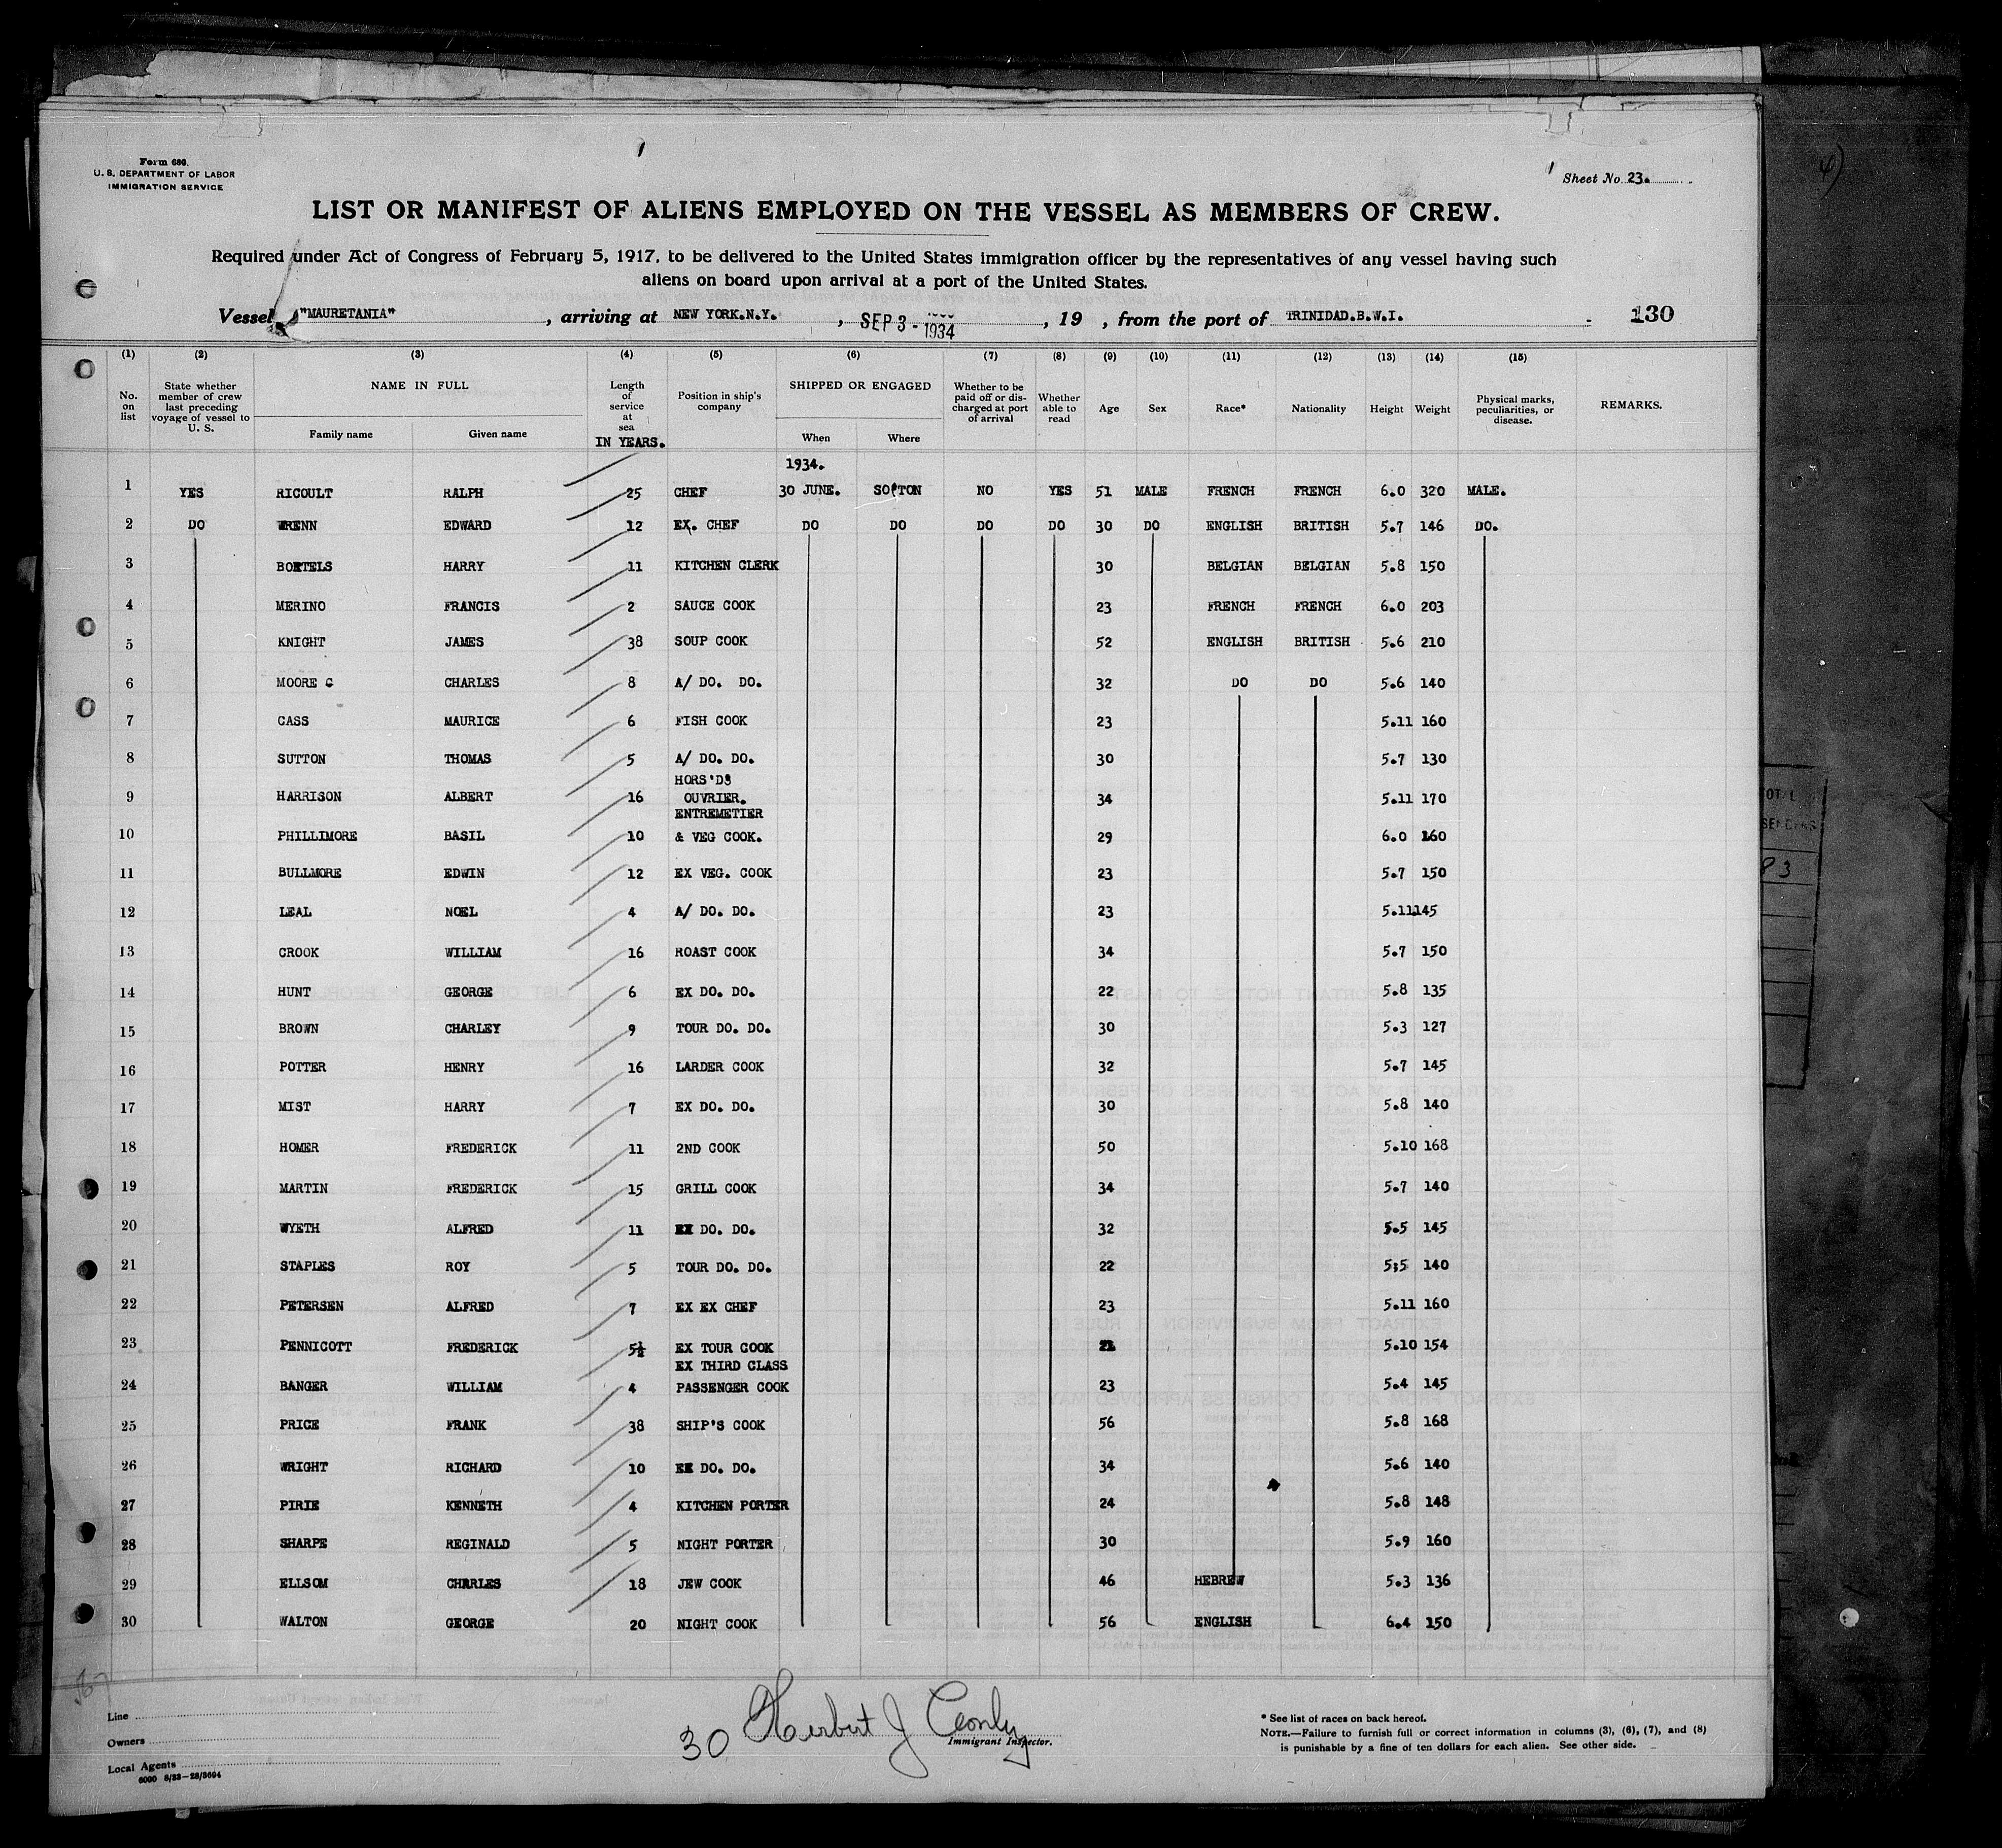 Form 680.
U. S. DEPARTMENT OF LABOR
IMMIGRATION SERVICE
Sheet No. 23.
LIST OR MANIFEST OF ALIENS EMPLOYED ON THE VESSEL AS MEMBERS OF CREW.
Required under Act of Congress of February 5, 1917, to be delivered to the United States immigration officer by the representatives of any vessel having such
aliens on board upon arrival at a port of the United States.
Vessel "MAURETANIA", arriving at NEW YORK.N.Y., SEP 3 - 1934, 19 , from the port of TRINIDAD.B.W.I. 130
(1) (2) (3) (4) (5) (6) (7) (8) (9) (10) (11) (12) (13) (14) (15)
No. on list State whether member of crew last preceding voyage of vessel to U. S. NAME IN FULL Family name Given name Length of service at sea IN YEARS. Position in ship's company SHIPPED OR ENGAGED When Where Whether to be paid off or discharged at port of arrival Whether able to read Age Sex Race* Nationality Height Weight Physical marks, peculiarities, or disease. REMARKS.
1934.
1 YES RICOULT RALPH 25 CHEF 30 JUNE. SO'TON NO YES 51 MALE FRENCH FRENCH 6.0 320 MALE.
2 DO WRENN EDWARD 12 EX. CHEF DO DO DO DO 30 DO ENGLISH BRITISH 5.7 146 DO.
3 BORTELS HARRY 11 KITCHEN CLERK 30 BELGIAN BELGIAN 5.8 150
4 MERINO FRANCIS 2 SAUCE COOK 23 FRENCH FRENCH 6.0 203
5 KNIGHT JAMES 38 SOUP COOK 52 ENGLISH BRITISH 5.6 210
6 MOORE C CHARLES 8 A/ DO. DO. 32 DO DO 5.6 140
7 CASS MAURICE 6 FISH COOK 23 5.11 160
8 SUTTON THOMAS 5 A/ DO. DO. 30 5.7 130
9 HARRISON ALBERT 16 HORS'DS OUVRIER. 34 5.11 170
10 PHILLIMORE BASIL 10 ENTREMETIER & VEG COOK. 29 6.0 160
11 BULLMORE EDWIN 12 EX VEG. COOK 23 5.7 150
12 LEAL NOEL 4 A/ DO. DO. 23 5.11 145
13 CROOK WILLIAM 16 ROAST COOK 34 5.7 150
14 HUNT GEORGE 6 EX DO. DO. 22 5.8 135
15 BROWN CHARLEY 9 TOUR DO. DO. 30 5.3 127
16 POTTER HENRY 16 LARDER COOK 32 5.7 145
17 MIST HARRY 7 EX DO. DO. 30 5.8 140
18 HOMER FREDERICK 11 2ND COOK 50 5.10 168
19 MARTIN FREDERICK 15 GRILL COOK 34 5.7 140
20 WYETH ALFRED 11 EX DO. DO. 32 5.5 145
21 STAPLES ROY 5 TOUR DO. DO. 22 5;5 140
22 PETERSEN ALFRED 7 EX EX CHEF 23 5.11 160
23 PENNICOTT FREDERICK 5½ EX TOUR COOK 5.10 154
24 BANGER WILLIAM 4 EX THIRD CLASS PASSENGER COOK 23 5.4 145
25 PRICE FRANK 38 SHIP'S COOK 56 5.8 168
26 WRIGHT RICHARD 10 EX DO. DO. 34 5.6 140
27 PIRIE KENNETH 4 KITCHEN PORTER 24 5.8 148
28 SHARPE REGINALD 5 NIGHT PORTER 30 5.9 160
29 ELLSOM CHARLES 18 JEW COOK 46 HEBREW 5.3 136
30 WALTON GEORGE 20 NIGHT COOK 56 ENGLISH 6.4 150
Line
Owners
Local Agents
6000 8/33—28/3694
30 Herbert J Conly
Immigrant Inspector.
* See list of races on back hereof.
NOTE.—Failure to furnish full or correct information in columns (3), (6), (7), and (8)
is punishable by a fine of ten dollars for each alien. See other side.